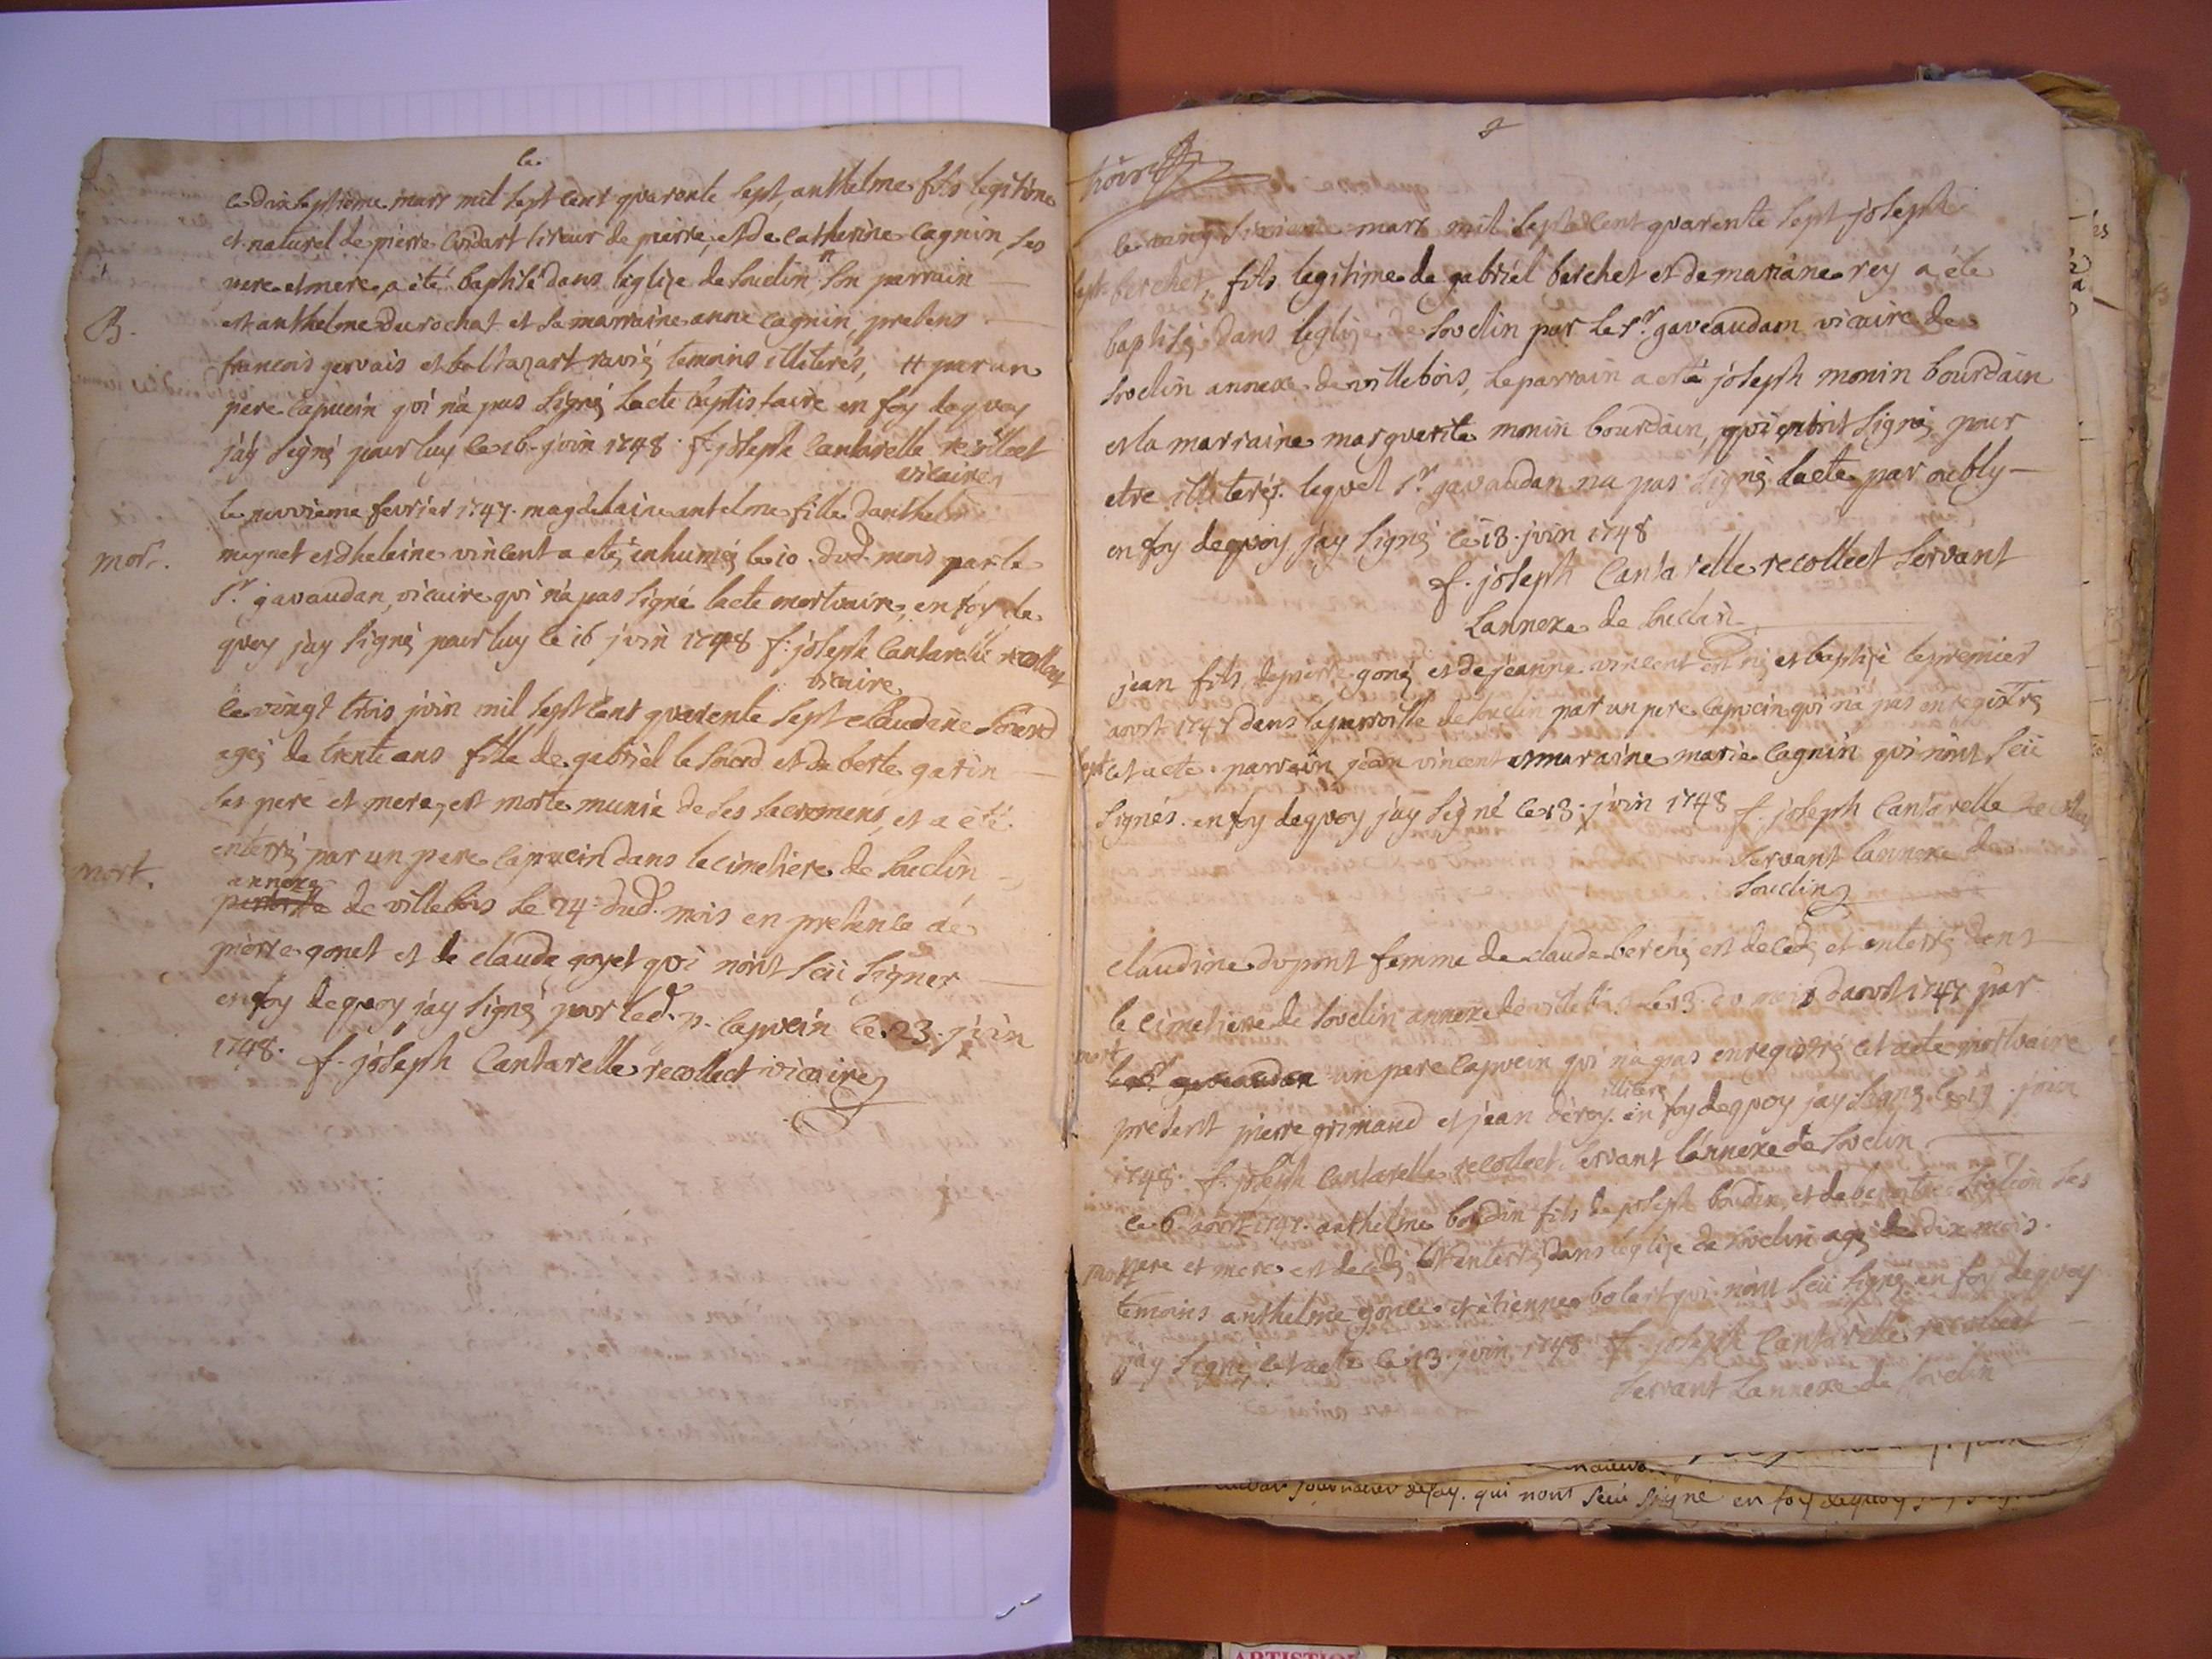 le
le dixseptieme mars mil sept cent quarente sept, anthelme fils legitime
et naturel de pierre cuidart tireur de pierre, et de catherine cagnin, ses
pere et mere, a été baptisé dans leglize de souclin, # son parrain
est anthelme durochat et sa marraine anne cagnin, presens
B.
francois gervais et baltazart ravié temoins illiterés, # par un
pere capucin qui n'a pas signé lacte baptistaire en foy de quoy
j'ay signé pour luy le 16 juin 1748. f. joseph Cantarelle recollect
vicaire
le neuvieme fevrier 1747. magdelaine antelme fille danthelme
mort.
mugnet et dheleine vincent a eté inhumée le 10. dud. mois par le
Sr. gavaudan, vicaire qui n'a pas signé lacte mortuaire, en foy de
quoy jay signé pour luy le 16 juin 1748 f. joseph Cantarelle recollect
vicaire
le vingt trois juin mil sept cent quarente sept claudine sourd
agée de trente ans fille de gabriel le sourd et de berte garin
ses pere et mere, est morte munie de ses sacremens, et a été
enterré par un pere capucin dans le cimetiere de souclin
mort.
annexe
paroisse de villebois le 24 dud. mois en presence de
pierre gonet et de claude goyet qui n'ont sçu signer
en foy de quoy jay signé pour led. p. capucin le 23. juin
1748. f. joseph Cantarelle recollect vicaire
2
le vingt mars mil sept cent quarente sept joseph
bapt. berchet, fils legitime de gabriel berchet et de mariane rey a été
baptisé dans leglize de souclin par le sr. gaveaudam vicaire de
souclin annexe de villebois, le parrain a esté joseph monin bourdain
et la marraine marguerite monin bourdain, qui signé pour
etre illiterés. lequel sr. gavaudan na pas signé lacte par oubly
en foy dequoy jay signé le 18. juin 1748
f. joseph Cantarelle recollect servant
Lannexe de souclin
jean fils de pierre goné et de jeanne vincent est né et baptizé le premier
aoust 1747 dans la parroisse de souclin par un pere capucin qui n'a pas enregistré
bapt. cet acte. parrain jean vincent et maraine marie cagnin qui n'ont sçu
signés. en foy dequoy jay signé le 13. juin 1748 f. joseph Cantarelle recollect
servant lannexe de
souclin
claudine dupont femme de claude berché est decedé et enterré dans
le cimetiere de souclin annexe de villebois le 13. du mois daoust 1747 par
mort
le sr gavaudan un pere capucin qui n'a pas enregistré cet acte mortuaire
illiteré
present pierre grimaud et jean déroy. en foy dequoy jay signé le 19 juin
1748. f. joseph Cantarelle recollect servant l'annexe de souclin
le 6 aoust 1747. anthelme boudin fils de joseph boudin, et de ses
mort
pere et mere est decedé et enterré dans leglize de souclin agé de dix mois.
temoins anthelme gonet et étienne qui n'ont sçu signé en foy dequoy
j'ay signé cet acte le 13. juin 1748 f. joseph Cantarelle recollect
servant Lannexe de souclin
journalier qui nont sceu signé en foy dequoy